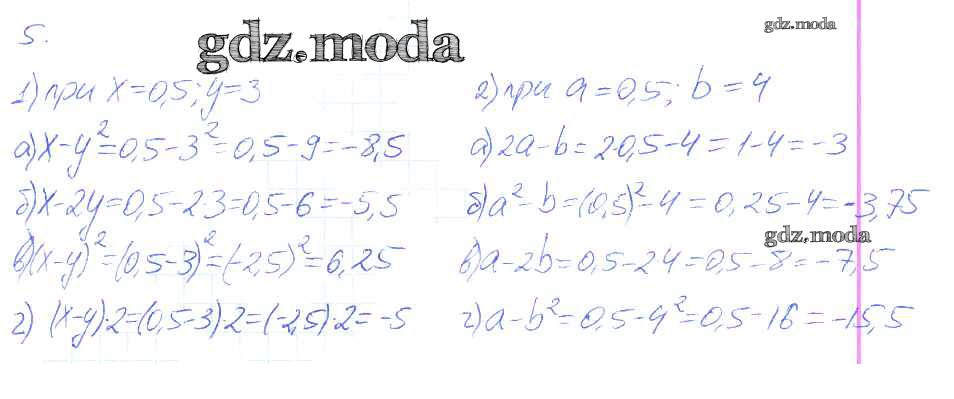 5.
gdz.moda
gdz.moda
1) при x=0,5; y=3
а) x-y²=0,5-3²=0,5-9=-8,5
б) x-2y=0,5-2·3=0,5-6=-5,5
в) (x-y)²=(0,5-3)²=(-2,5)²=6,25
г) (x-y)·2=(0,5-3)·2=(-2,5)·2=-5
2) при a=0,5; b=4
а) 2a-b=2·0,5-4=1-4=-3
б) a²-b=(0,5)²-4=0,25-4=-3,75
gdz.moda
в) a-2b=0,5-2·4=0,5-8=-7,5
г) a-b²=0,5-4²=0,5-16=-15,5